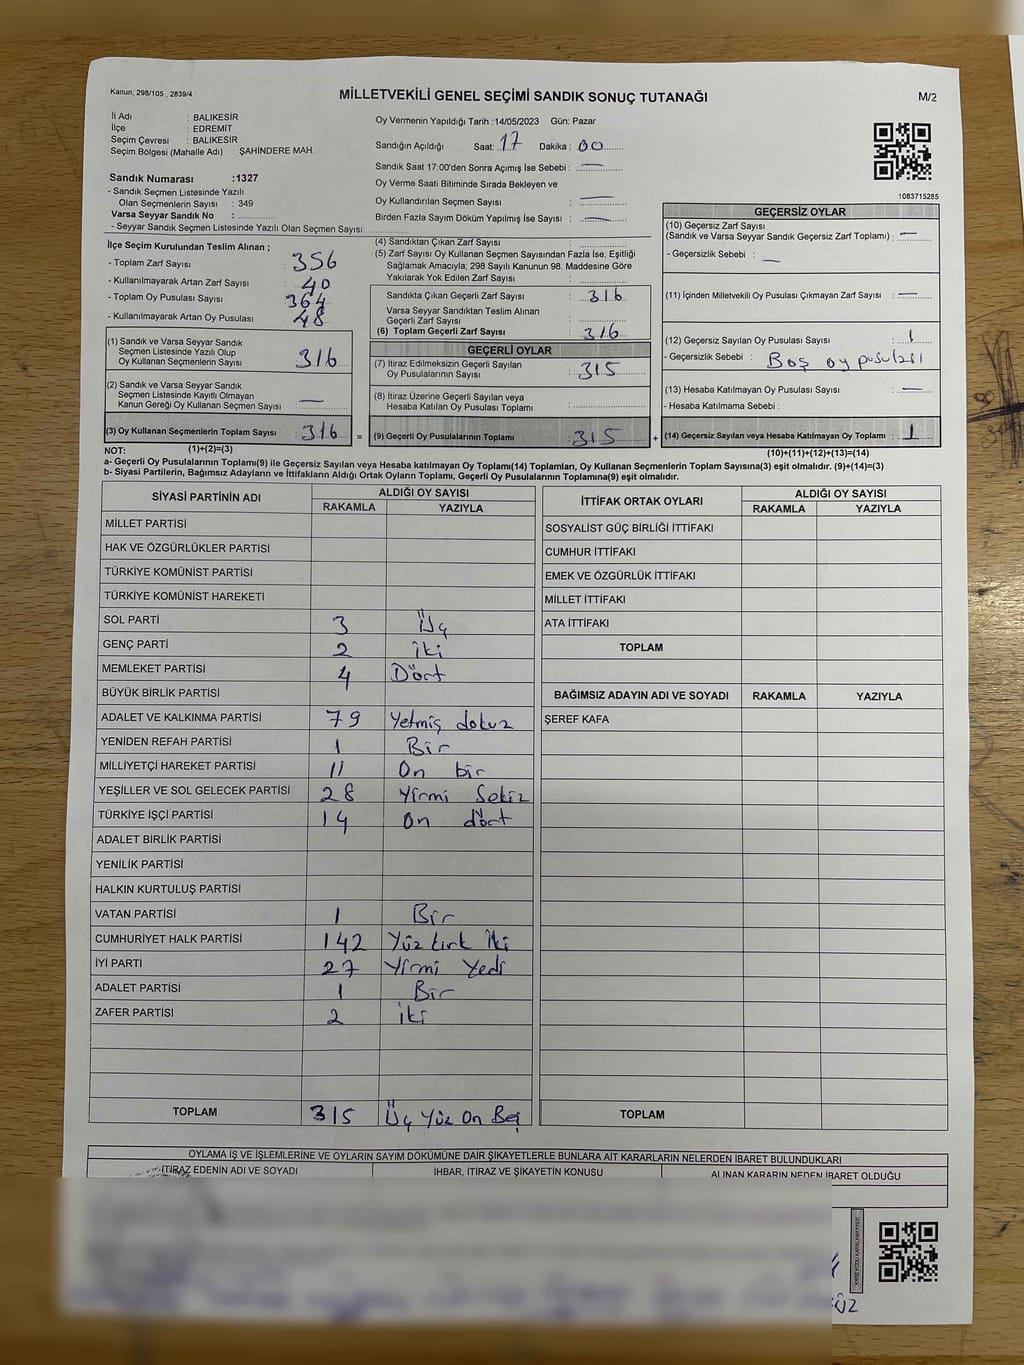 Kanun; 298/105 , 2839/4
MİLLETVEKİLİ GENEL SEÇİMİ SANDIK SONUÇ TUTANAĞI
M/2
İl Adı : BALIKESİR
İlçe : EDREMİT
Seçim Çevresi : BALIKESİR
Seçim Bölgesi (Mahalle Adı) : ŞAHİNDERE MAH.
Sandık Numarası :1327
- Sandık Seçmen Listesinde Yazılı
Olan Seçmenlerin Sayısı : 349
Varsa Seyyar Sandık No :
- Seyyar Sandık Seçmen Listesinde Yazılı Olan Seçmen Sayısı:
Oy Vermenin Yapıldığı Tarih :14/05/2023 Gün: Pazar
Sandığın Açıldığı Saat: 17 Dakika : 00
Sandık Saat 17:00'den Sonra Açımış İse Sebebi : —
Oy Verme Saati Bitiminde Sırada Bekleyen ve
Oy Kullandırılan Seçmen Sayısı : —
Birden Fazla Sayım Döküm Yapılmış İse Sayısı : —
1083715285
İlçe Seçim Kurulundan Teslim Alınan ;
- Toplam Zarf Sayısı : 356
- Kullanılmayarak Artan Zarf Sayısı : 40
- Toplam Oy Pusulası Sayısı : 364
- Kullanılmayarak Artan Oy Pusulası : 48
(1) Sandık ve Varsa Seyyar Sandık
Seçmen Listesinde Yazılı Olup
Oy Kullanan Seçmenlerin Sayısı : 316
(2) Sandık ve Varsa Seyyar Sandık
Seçmen Listesinde Kayıtlı Olmayan
Kanun Gereği Oy Kullanan Seçmen Sayısı : —
(3) Oy Kullanan Seçmenlerin Toplam Sayısı : 316
(4) Sandıktan Çıkan Zarf Sayısı :
(5) Zarf Sayısı Oy Kullanan Seçmen Sayısından Fazla İse, Eşitliği
Sağlamak Amacıyla; 298 Sayılı Kanunun 98. Maddesine Göre
Yakılarak Yok Edilen Zarf Sayısı :
Sandıkta Çıkan Geçerli Zarf Sayısı : 316
Varsa Seyyar Sandıktan Teslim Alınan
Geçerli Zarf Sayısı :
(6) Toplam Geçerli Zarf Sayısı : 316
GEÇERLİ OYLAR
(7) İtiraz Edilmeksizin Geçerli Sayılan
Oy Pusulalarının Sayısı : 315
(8) İtiraz Üzerine Geçerli Sayılan veya
Hesaba Katılan Oy Pusulası Toplamı :
= (9) Geçerli Oy Pusulalarının Toplamı : 315 +
GEÇERSİZ OYLAR
(10) Geçersiz Zarf Sayısı
(Sandık ve Varsa Seyyar Sandık Geçersiz Zarf Toplamı) : —
- Geçersizlik Sebebi : —
(11) İçinden Milletvekili Oy Pusulası Çıkmayan Zarf Sayısı : —
(12) Geçersiz Sayılan Oy Pusulası Sayısı : 1
- Geçersizlik Sebebi : Boş oy pusulası
(13) Hesaba Katılmayan Oy Pusulası Sayısı : —
- Hesaba Katılmama Sebebi :
(14) Geçersiz Sayılan veya Hesaba Katılmayan Oy Toplamı : 1
NOT: (1)+(2)=(3)
(10)+(11)+(12)+(13)=(14)
a- Geçerli Oy Pusulalarının Toplamı(9) ile Geçersiz Sayılan veya Hesaba katılmayan Oy Toplamı(14) Toplamları, Oy Kullanan Seçmenlerin Toplam Sayısına(3) eşit olmalıdır. (9)+(14)=(3)
b- Siyasi Partilerin, Bağımsız Adayların ve İttifakların Aldığı Ortak Oyların Toplamı, Geçerli Oy Pusulalarının Toplamına(9) eşit olmalıdır.
SİYASİ PARTİNİN ADI ALDIĞI OY SAYISI
RAKAMLA YAZIYLA
MİLLET PARTİSİ
HAK VE ÖZGÜRLÜKLER PARTİSİ
TÜRKİYE KOMÜNİST PARTİSİ
TÜRKİYE KOMÜNİST HAREKETİ
SOL PARTİ 3 Üç
GENÇ PARTİ 2 İki
MEMLEKET PARTİSİ 4 Dört
BÜYÜK BİRLİK PARTİSİ
ADALET VE KALKINMA PARTİSİ 79 Yetmiş dokuz
YENİDEN REFAH PARTİSİ 1 Bir
MİLLİYETÇİ HAREKET PARTİSİ 11 On bir
YEŞİLLER VE SOL GELECEK PARTİSİ 28 Yirmi Sekiz
TÜRKİYE İŞÇİ PARTİSİ 14 On dört
ADALET BİRLİK PARTİSİ
YENİLİK PARTİSİ
HALKIN KURTULUŞ PARTİSİ
VATAN PARTİSİ 1 Bir
CUMHURİYET HALK PARTİSİ 142 Yüz kırk İki
İYİ PARTİ 27 Yirmi Yedi
ADALET PARTİSİ 1 Bir
ZAFER PARTİSİ 2 İki
TOPLAM 315 Üç Yüz On Beş
İTTİFAK ORTAK OYLARI ALDIĞI OY SAYISI
RAKAMLA YAZIYLA
SOSYALİST GÜÇ BİRLİĞİ İTTİFAKI
CUMHUR İTTİFAKI
EMEK VE ÖZGÜRLÜK İTTİFAKI
MİLLET İTTİFAKI
ATA İTTİFAKI
TOPLAM
BAĞIMSIZ ADAYIN ADI VE SOYADI RAKAMLA YAZIYLA
ŞEREF KAFA
TOPLAM
OYLAMA İŞ VE İŞLEMLERİNE VE OYLARIN SAYIM DÖKÜMÜNE DAİR ŞİKAYETLERLE BUNLARA AİT KARARLARIN NELERDEN İBARET BULUNDUKLARI
İTİRAZ EDENİN ADI VE SOYADI İHBAR, İTİRAZ VE ŞİKAYETİN KONUSU ALINAN KARARIN NEDEN İBARET OLDUĞU